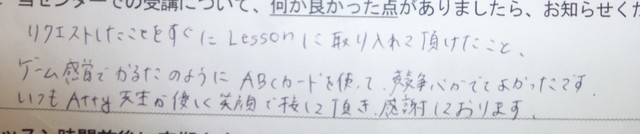 当センターでの受講について、何か良かった点がありましたら、お知らせくだ
リクエストしたことをすぐに Lesson に取り入れて頂けたこと、
ゲーム感覚でかるたのように ABCカードを使って、競争心がでてよかったです。
いつも Atty 先生が優しく笑顔で接して頂き、感謝しております。